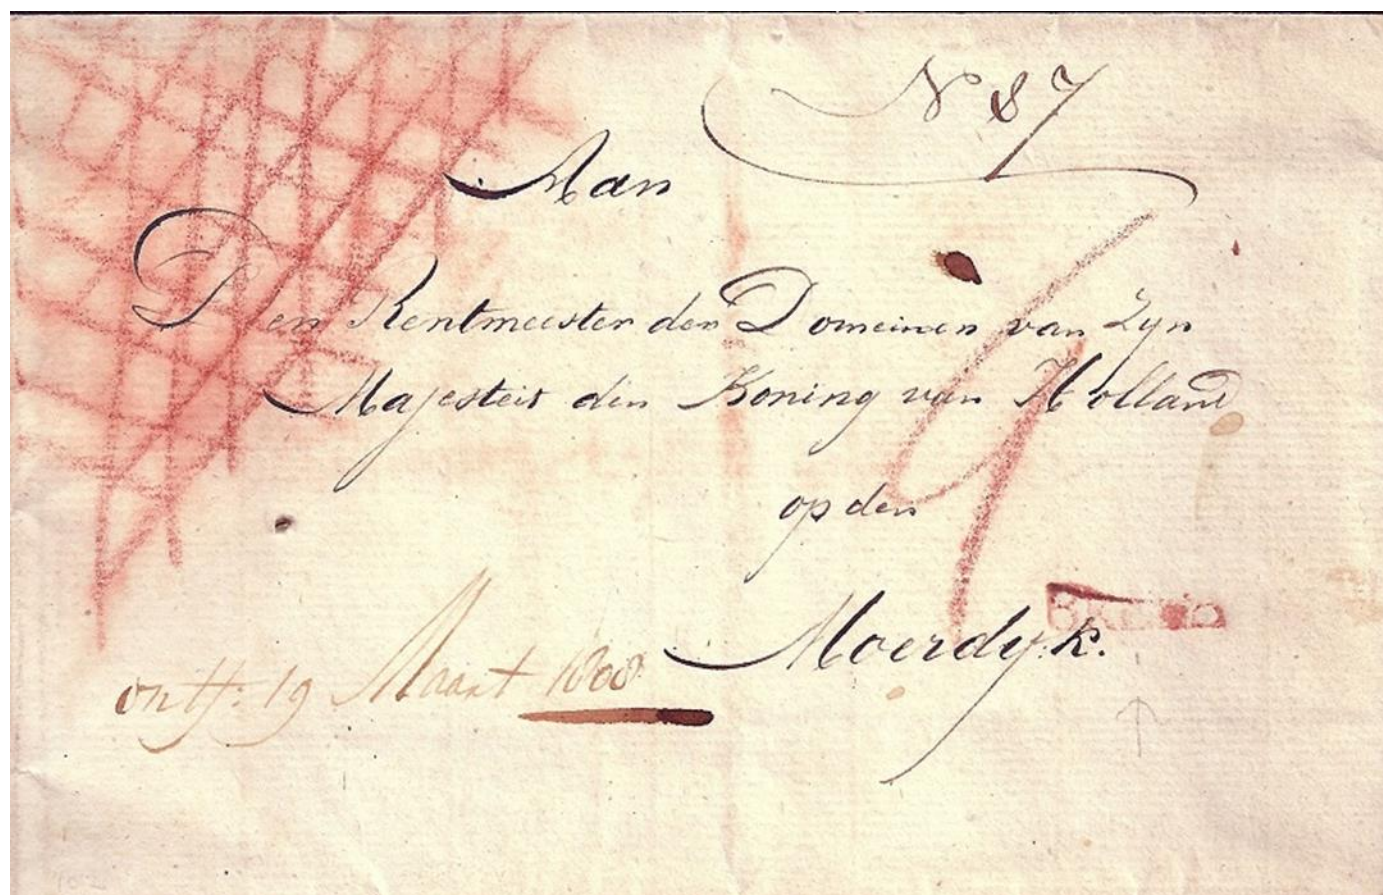 N 87
Aan
Den Rentmeester der Domeinen van Zyn
Majesteit den Koning van Holland
op den
Moerdyk.
BREDA
ontf: 19 Maart 1808